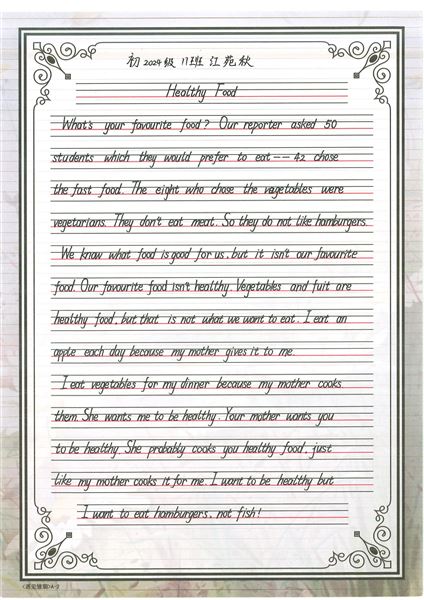 初2024级 11班 江苑秋
Healthy Food
What's your favourite food? Our reporter asked 50
students which they would prefer to eat -- 42 chose
the fast food. The eight who chose the vegetables were
vegetarians. They don't eat meat. So they do not like hamburgers.
We know what food is good for us, but it isn't our favourite
food. Our favourite food isn't healthy. Vegetables and fuit are
healthy food, but that is not what we want to eat. I eat an
apple each day because my mother gives it to me.
I eat vegetables for my dinner because my mother cooks
them. She wants me to be healthy. Your mother wants you
to be healthy. She probably cooks you healthy food, just
like my mother cooks it for me. I want to be healthy but
I want to eat hamburgers, not fish!